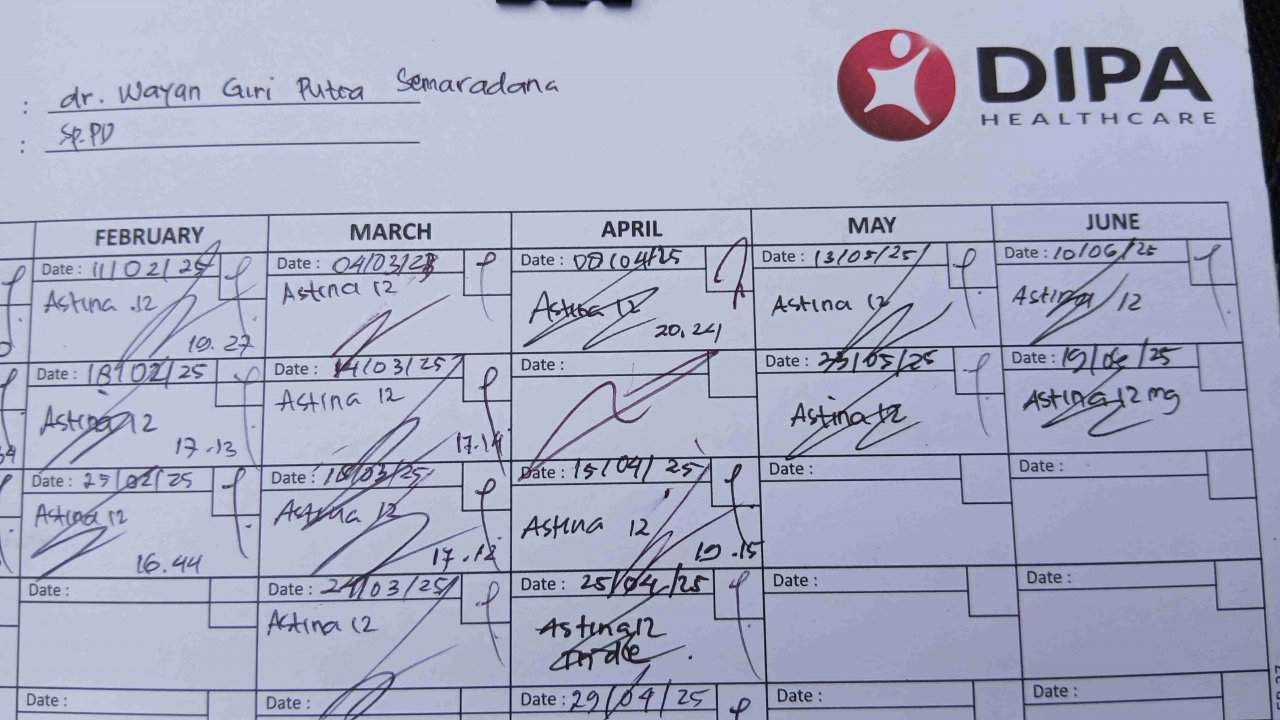 : dr. Wayan Giri Putra Semaradana
: Sp.PD
DIPA
HEALTHCARE
FEBRUARY MARCH APRIL MAY JUNE
Date : 11/02/25 Date : 04/03/25 Date : 08/04/25 Date : 13/05/25 Date : 10/06/25
Astina .12 Astina 12 Astina 12 Astina 12 Astina 12
19.27 20.24
Date : 18/02/25 Date : 14/03/25 Date : Date : 23/05/25 Date : 19/06/25
Astina 12 Astina 12 Astina 12 Astina 12 mg
17.13 17.14
Date : 25/02/25 Date : 18/03/25 Date : 15/04/25 Date : Date :
Astina 12 Astina 12 Astina 12
16.44 17.12 19.15
Date : Date : 24/03/25 Date : 25/04/25 Date : Date :
Astina 12 Astina 12
Date : Date : Date : 29/04/25 Date : Date :